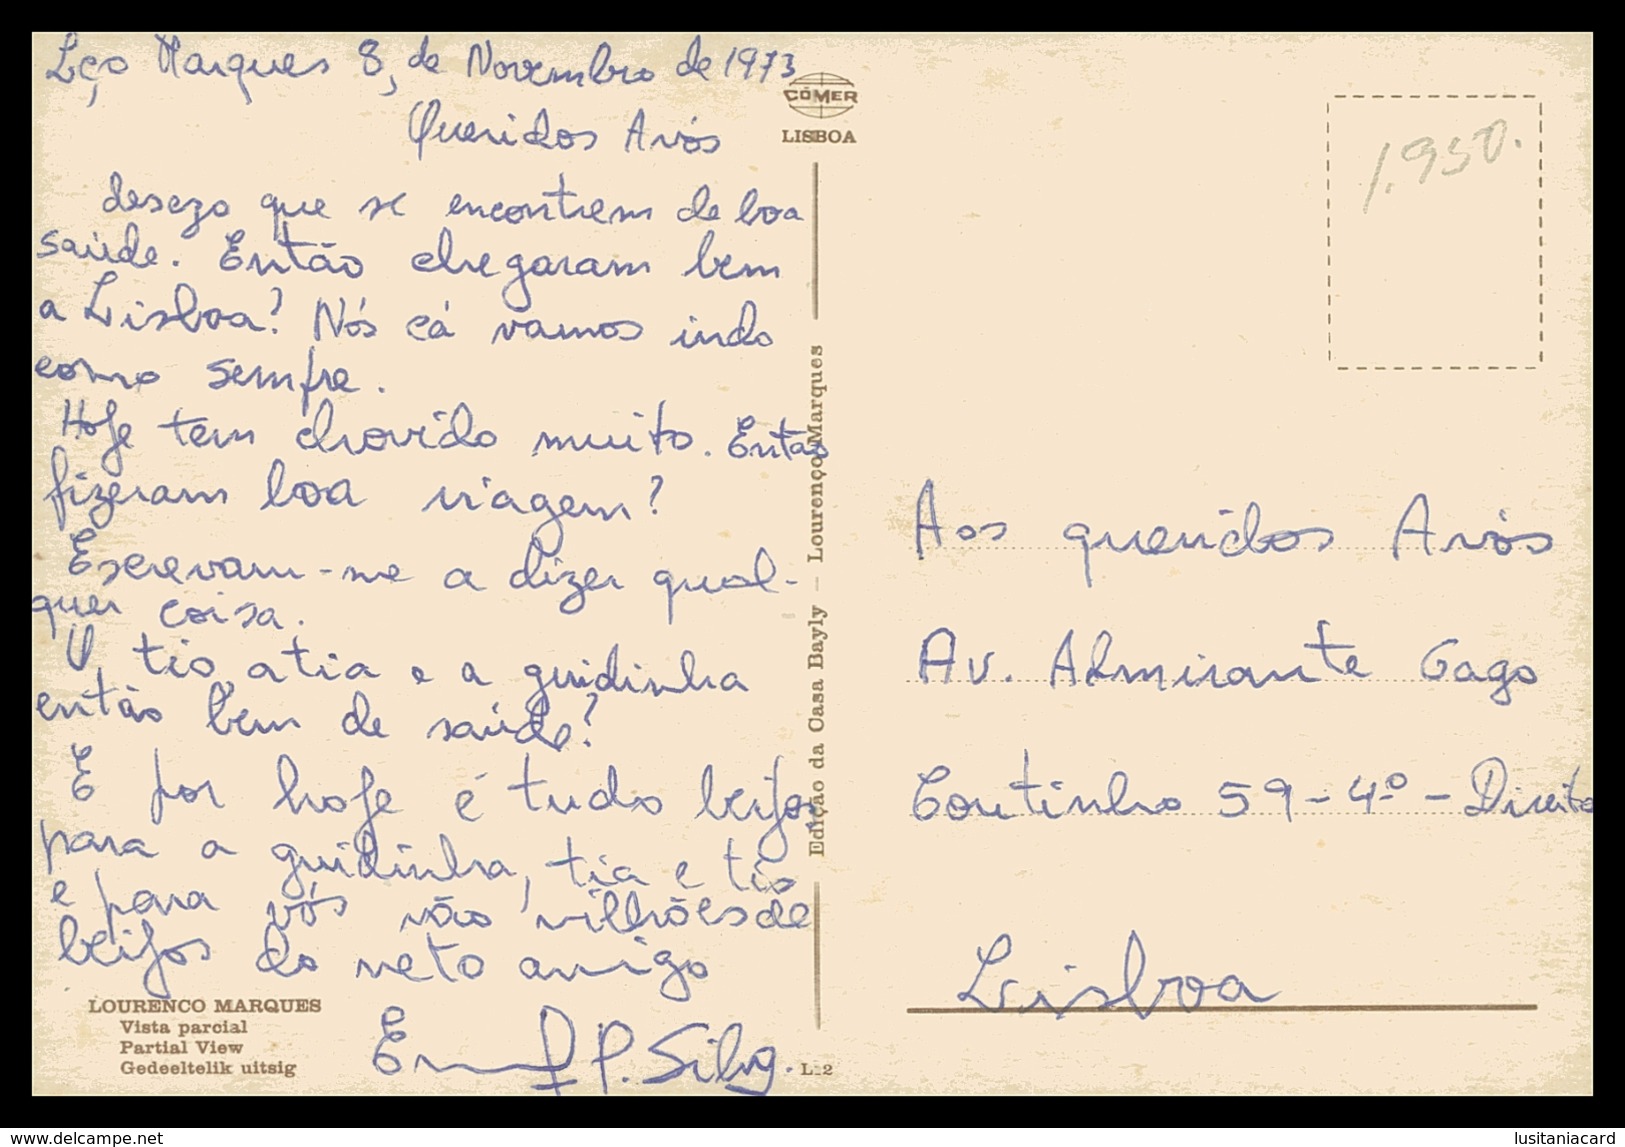 Lço Marques 8, de Novembro de 1973
Queridos Avós
desezo que se encontrem de boa
saúde. Então chegaram bem
a Lisboa? Nós cá vamos indo
como sempre.
Hoje tem chovido muito. Então
fizeram boa viagem?
Escrevam-me a dizer qual-
quer coisa.
O, tio, a tia e a guidinha
então bem de saúde?
E por hoje é tudo beijos
para a guidinha, tia e tio
e para vós vão milhões de
beijos do neto amigo
P. Silva.
LOURENCO MARQUES
Vista parcial
Partial View
Gedeeltelik uitsig
L-2
CÓMER
LISBOA
Edição da Casa Bayly — Lourenço Marques
1.950.
Aos queridos Avós
Av. Almirante Gago
Coutinho 59-4º-Direito
Lisboa
www.delcampe.net
lusitaniacard